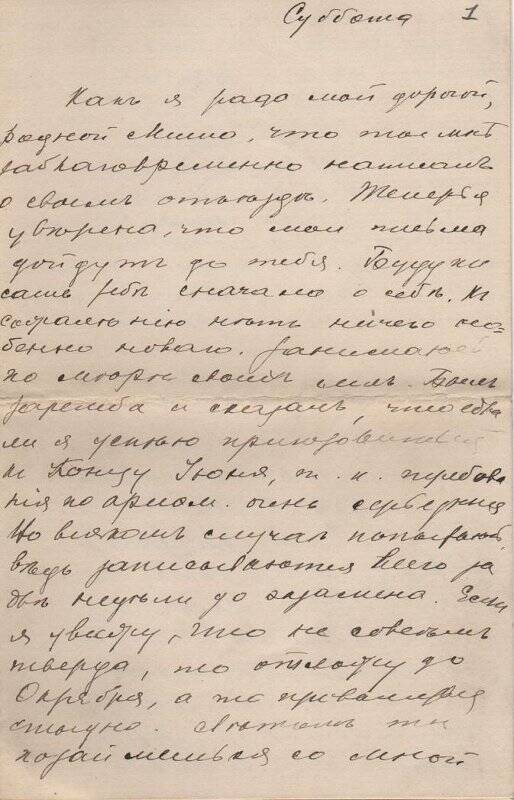 Суббота 1
Какъ я рада мой дорогой,
родной Миша, что ты мнѣ
заблаговременно написалъ
о своемъ отъѣздѣ. Теперь я
увѣрена, что мои письма
дойдутъ до тебя.
сначала о себѣ. Къ
сожалѣнію нѣтъ ничего осо-
бенно новаго. Занимаюсь
по мѣрѣ своихъ силъ. Былъ
и сказалъ, что едва
ли я успѣю приготовиться
къ Концу Іюня, т. к. требова
нія по очень серьезныя
Но всякомъ случаѣ попытаюсь,
вѣдь записываются всего за
двѣ недѣли до экзамена. Если
я увижу, что не совсѣмъ
тверда, то отложу до
Октября, а то провалиться
стыдно. ты
позаймешься со мной